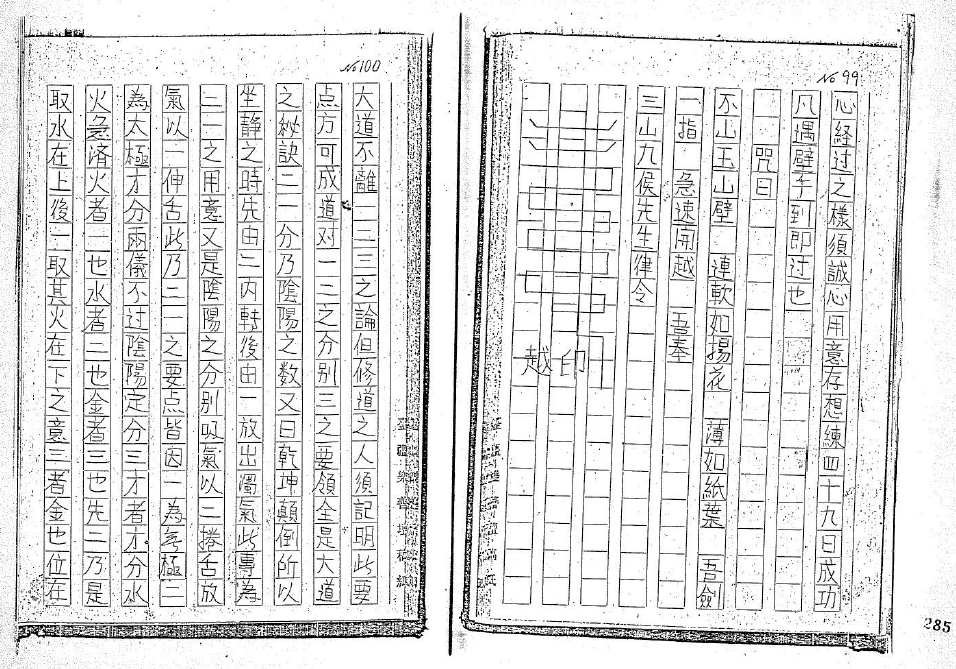 № 99
心経过之樣須誠心用意存想練四十九日成功
凡遇壁手到即过也
咒曰
不山玉山壁 連軟如揚花 薄如紙葉 吾劍
一指 急速開越 吾奉
三山九侯先生律令
越印
№ 100
大道不離一二三之論但修道之人須記明此要
点方可成道对一二之分别三之要領全是大道
之秘訣二一分乃陰陽之数又曰乾坤顛倒所以
坐静之時先由二内轉後由一放出濁氣此專為
二一之用意又是陰陽之分别吸氣以二捲舌放
氣以一伸舌此乃二一之要点皆因一為無極二
為太極才分兩儀不过陰陽定分三才者才分水
火急済火者一也水者二也金者三也先二乃是
取水在上後一取其火在下之意三者金也位在
285